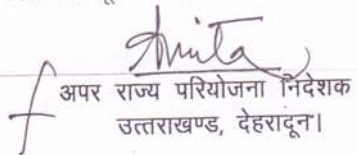 Anita
अपर राज्य परियोजना निदेशक
उत्तराखण्ड, देहरादून।